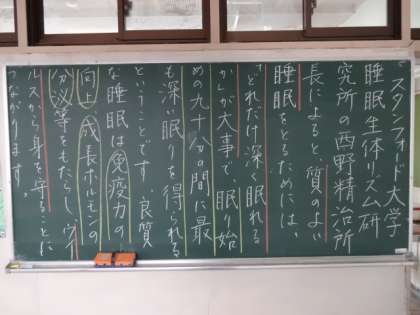 スタンフォード大学
睡眠生体リズム研
究所の西野精治所
長によると、質のよい
睡眠をとるためには、
「どれだけ深く眠れる
か」が大事で、眠り始
めの九十分の間に最
も深い眠りを得られる
ということです。良質
な睡眠は免疫力の
向上、成長ホルモンの
分泌等をもたらし、ウイ
ルスから身を守ることに
つながります。